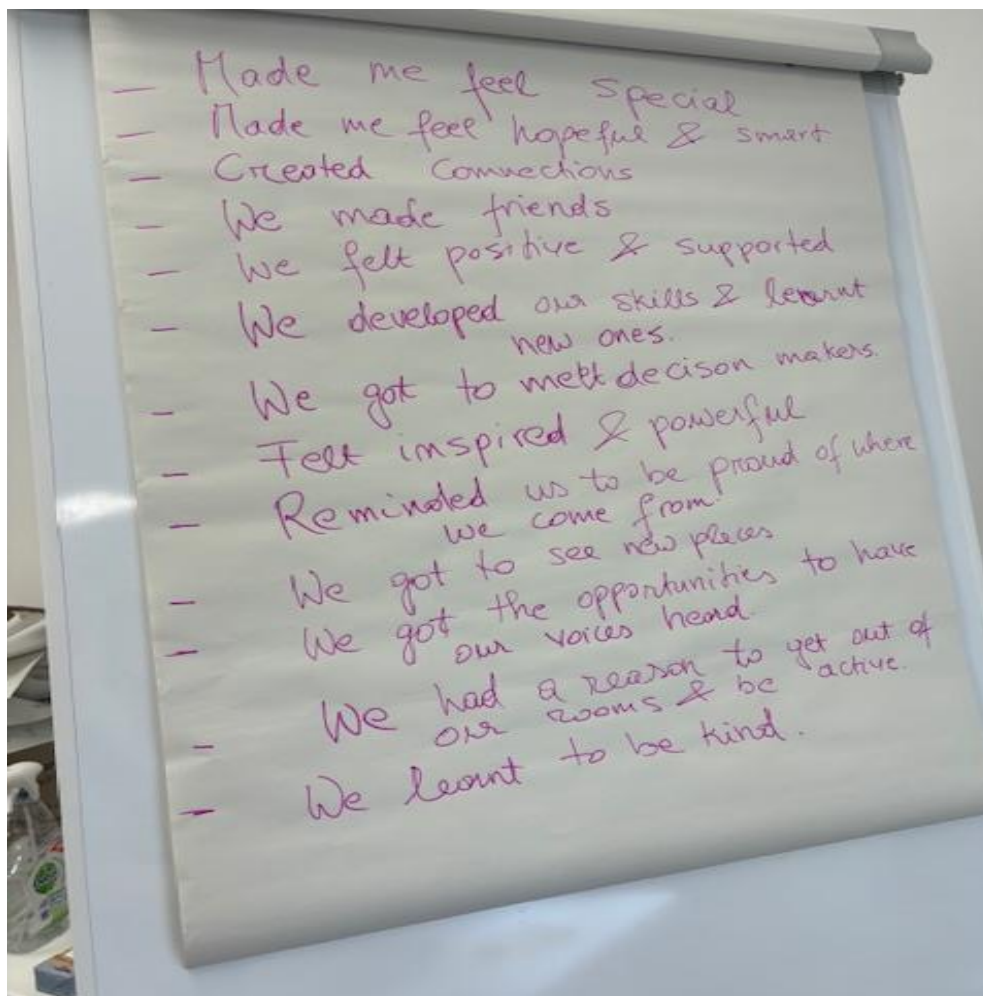 - Made me feel special
- Made me feel hopeful & smart
- Created Connections
- We made friends
- We felt positive & supported
- We developed our skills & learnt
new ones.
- We got to mett decison makers.
- Felt inspired & powerful
- Reminded us to be proud of where
we come from
- We got to see new places
- We got the opportunities to have
our voices heard
- We had a reason to get out of
our rooms & be active.
- We learnt to be kind.